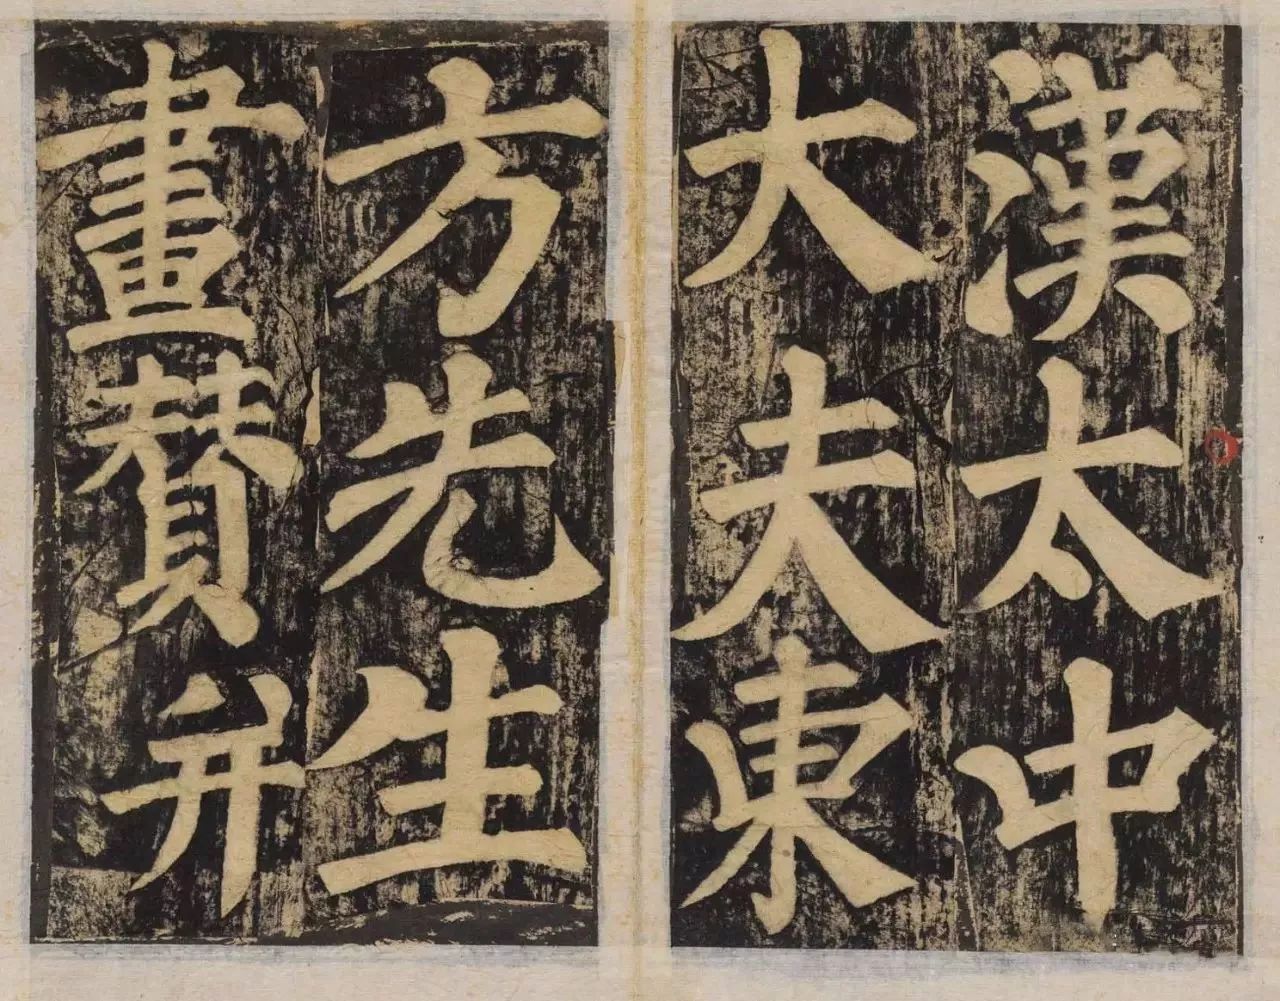 漢太中
大夫東
方先生
畫賛并